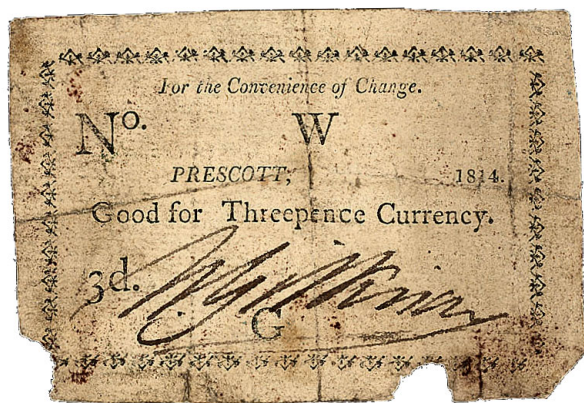 For the Convenience of Change.
No. W
PRESCOTT, 1814.
Good for Threepence Currency.
3d.
G